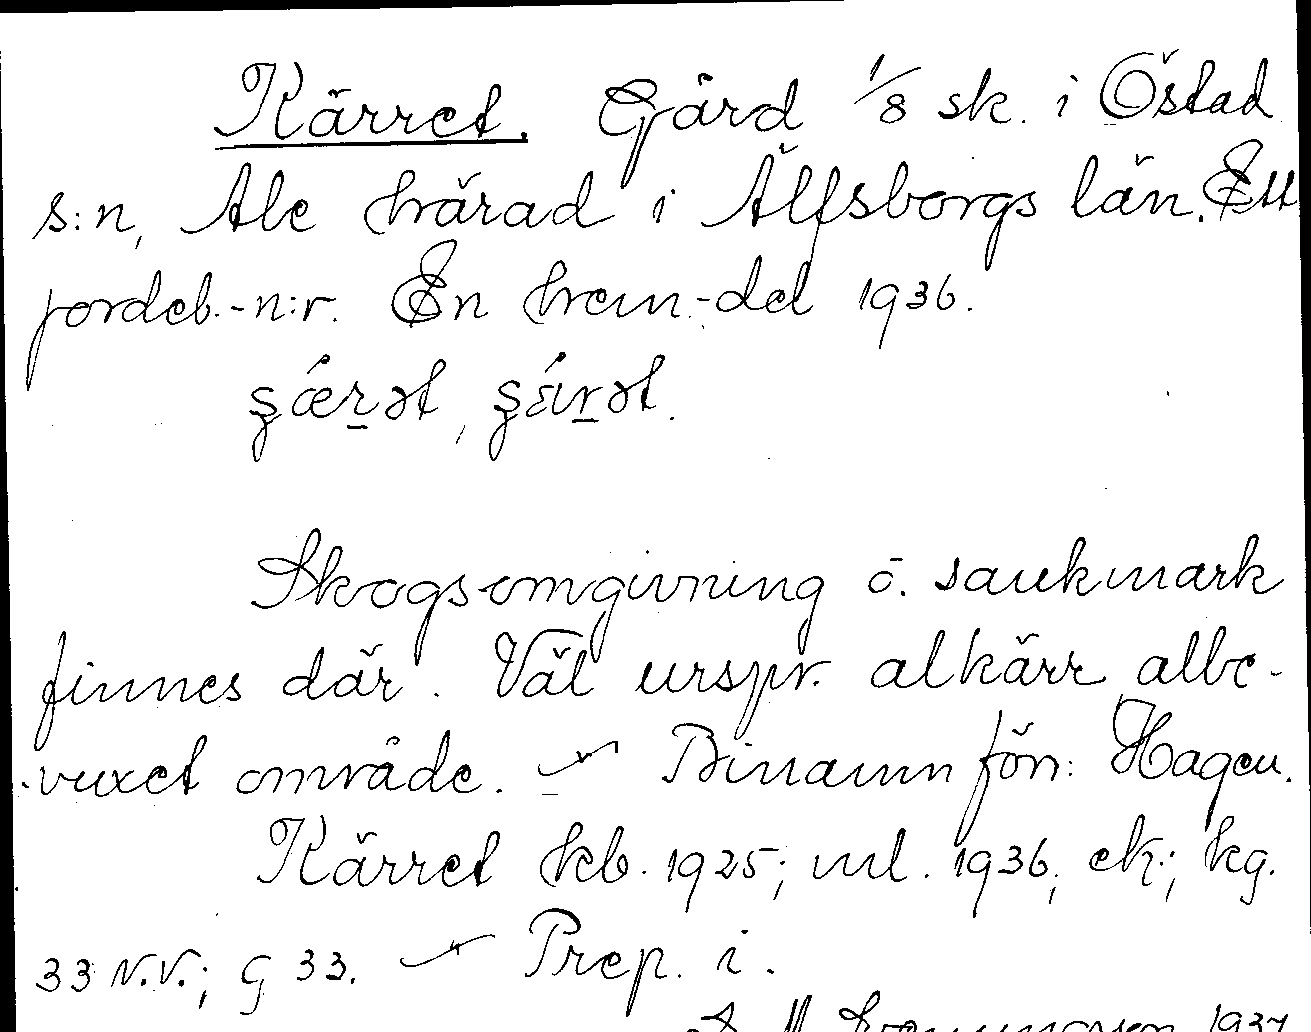 Kärret. Gård 1/8 sk. i Östad
s:n, Ale härad i Älfsborgs län. Ett
jordeb.-n:r. En hem.-del 1936.
Skogsomgivning o. sankmark
finnes där. Väl urspr. alkärr, albe-
vuxet område. — Binamn förr: Hagen.
Kärret kb. 1925; ml. 1936; ek.; kg.
33 N.V.; G 33. — Prep. i.
1937